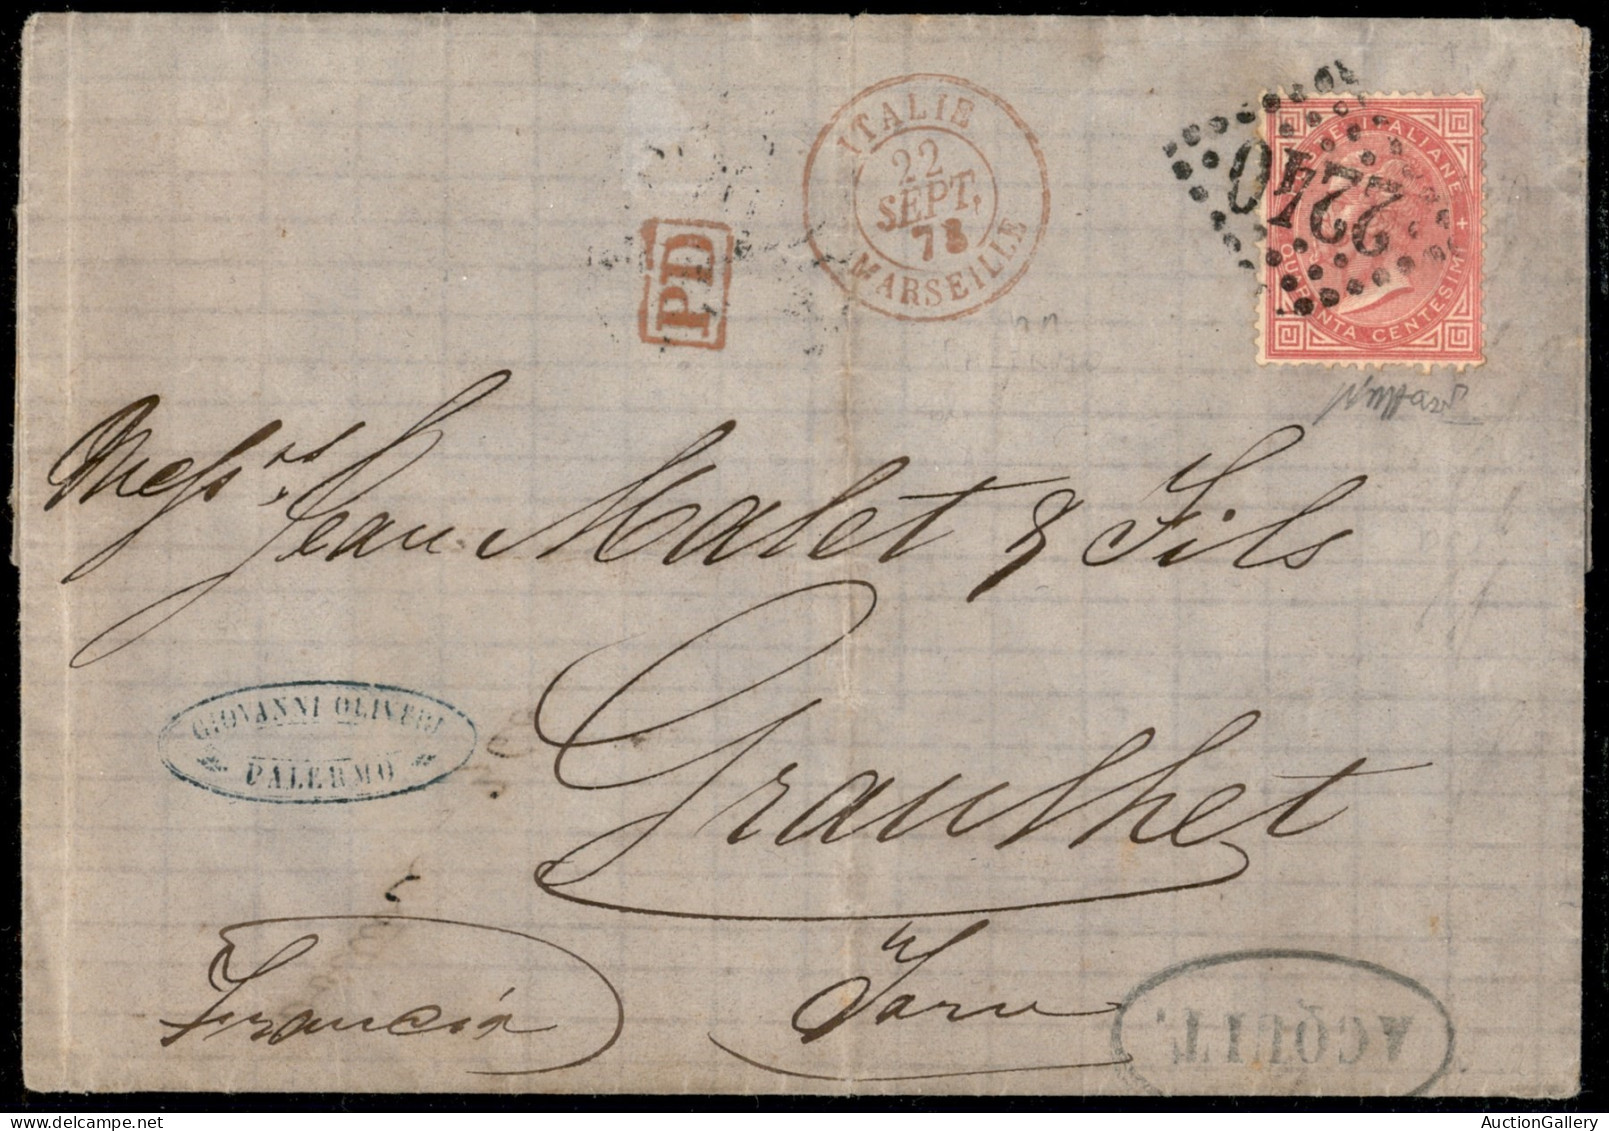 ITALIE
22
SEPT.
73
MARSEILLE
PD
2240
POSTE ITALIANE
QUARANTA CENTESIMI
Mess.rs Jean Malet & Fils
Graulhet
GIOVANNI OLIVERI
PALERMO
Francia
Tarn
ACQUIT.
AuctionGallery